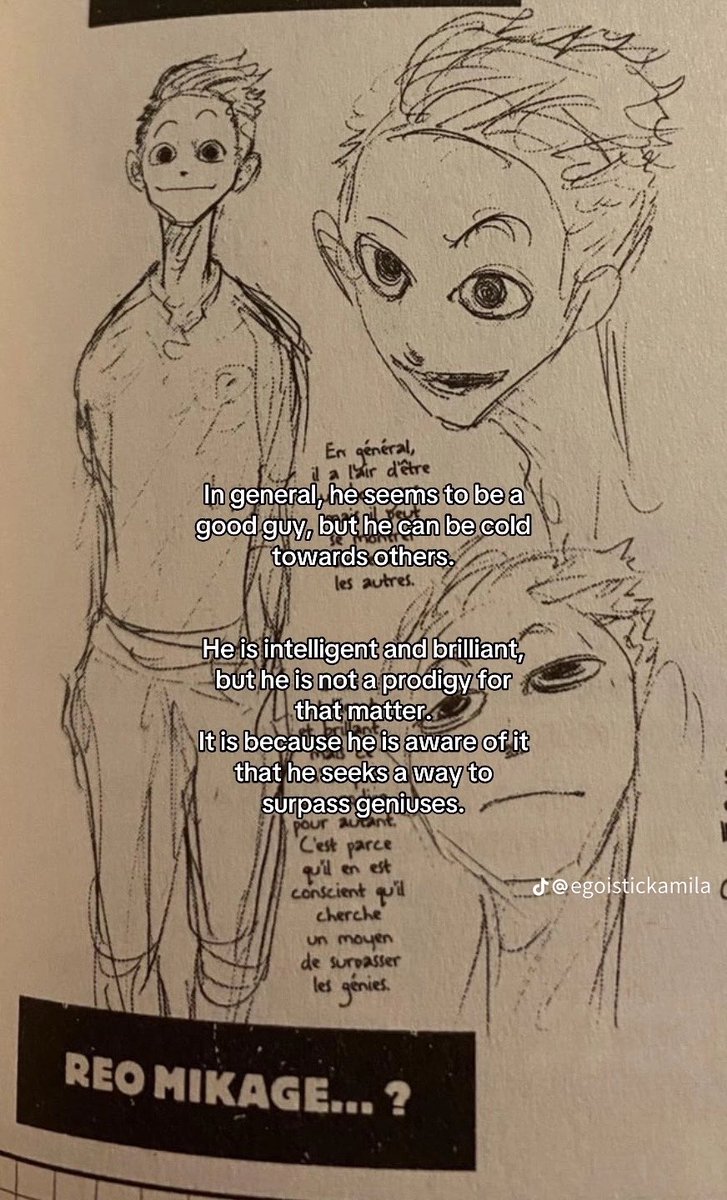 En général,
il a l'air d'être
In general, he seems to be a
good guy, but he can be cold
towards others.
les autres.
He is intelligent and brilliant,
but he is not a prodigy for
that matter.
It is because he is aware of it
that he seeks a way to
surpass geniuses.
pour autant.
C'est parce
qu'il en est
conscient qu'il
cherche
un moyen
de surpasser
les génies.
@egoistickamila
REO MIKAGE... ?